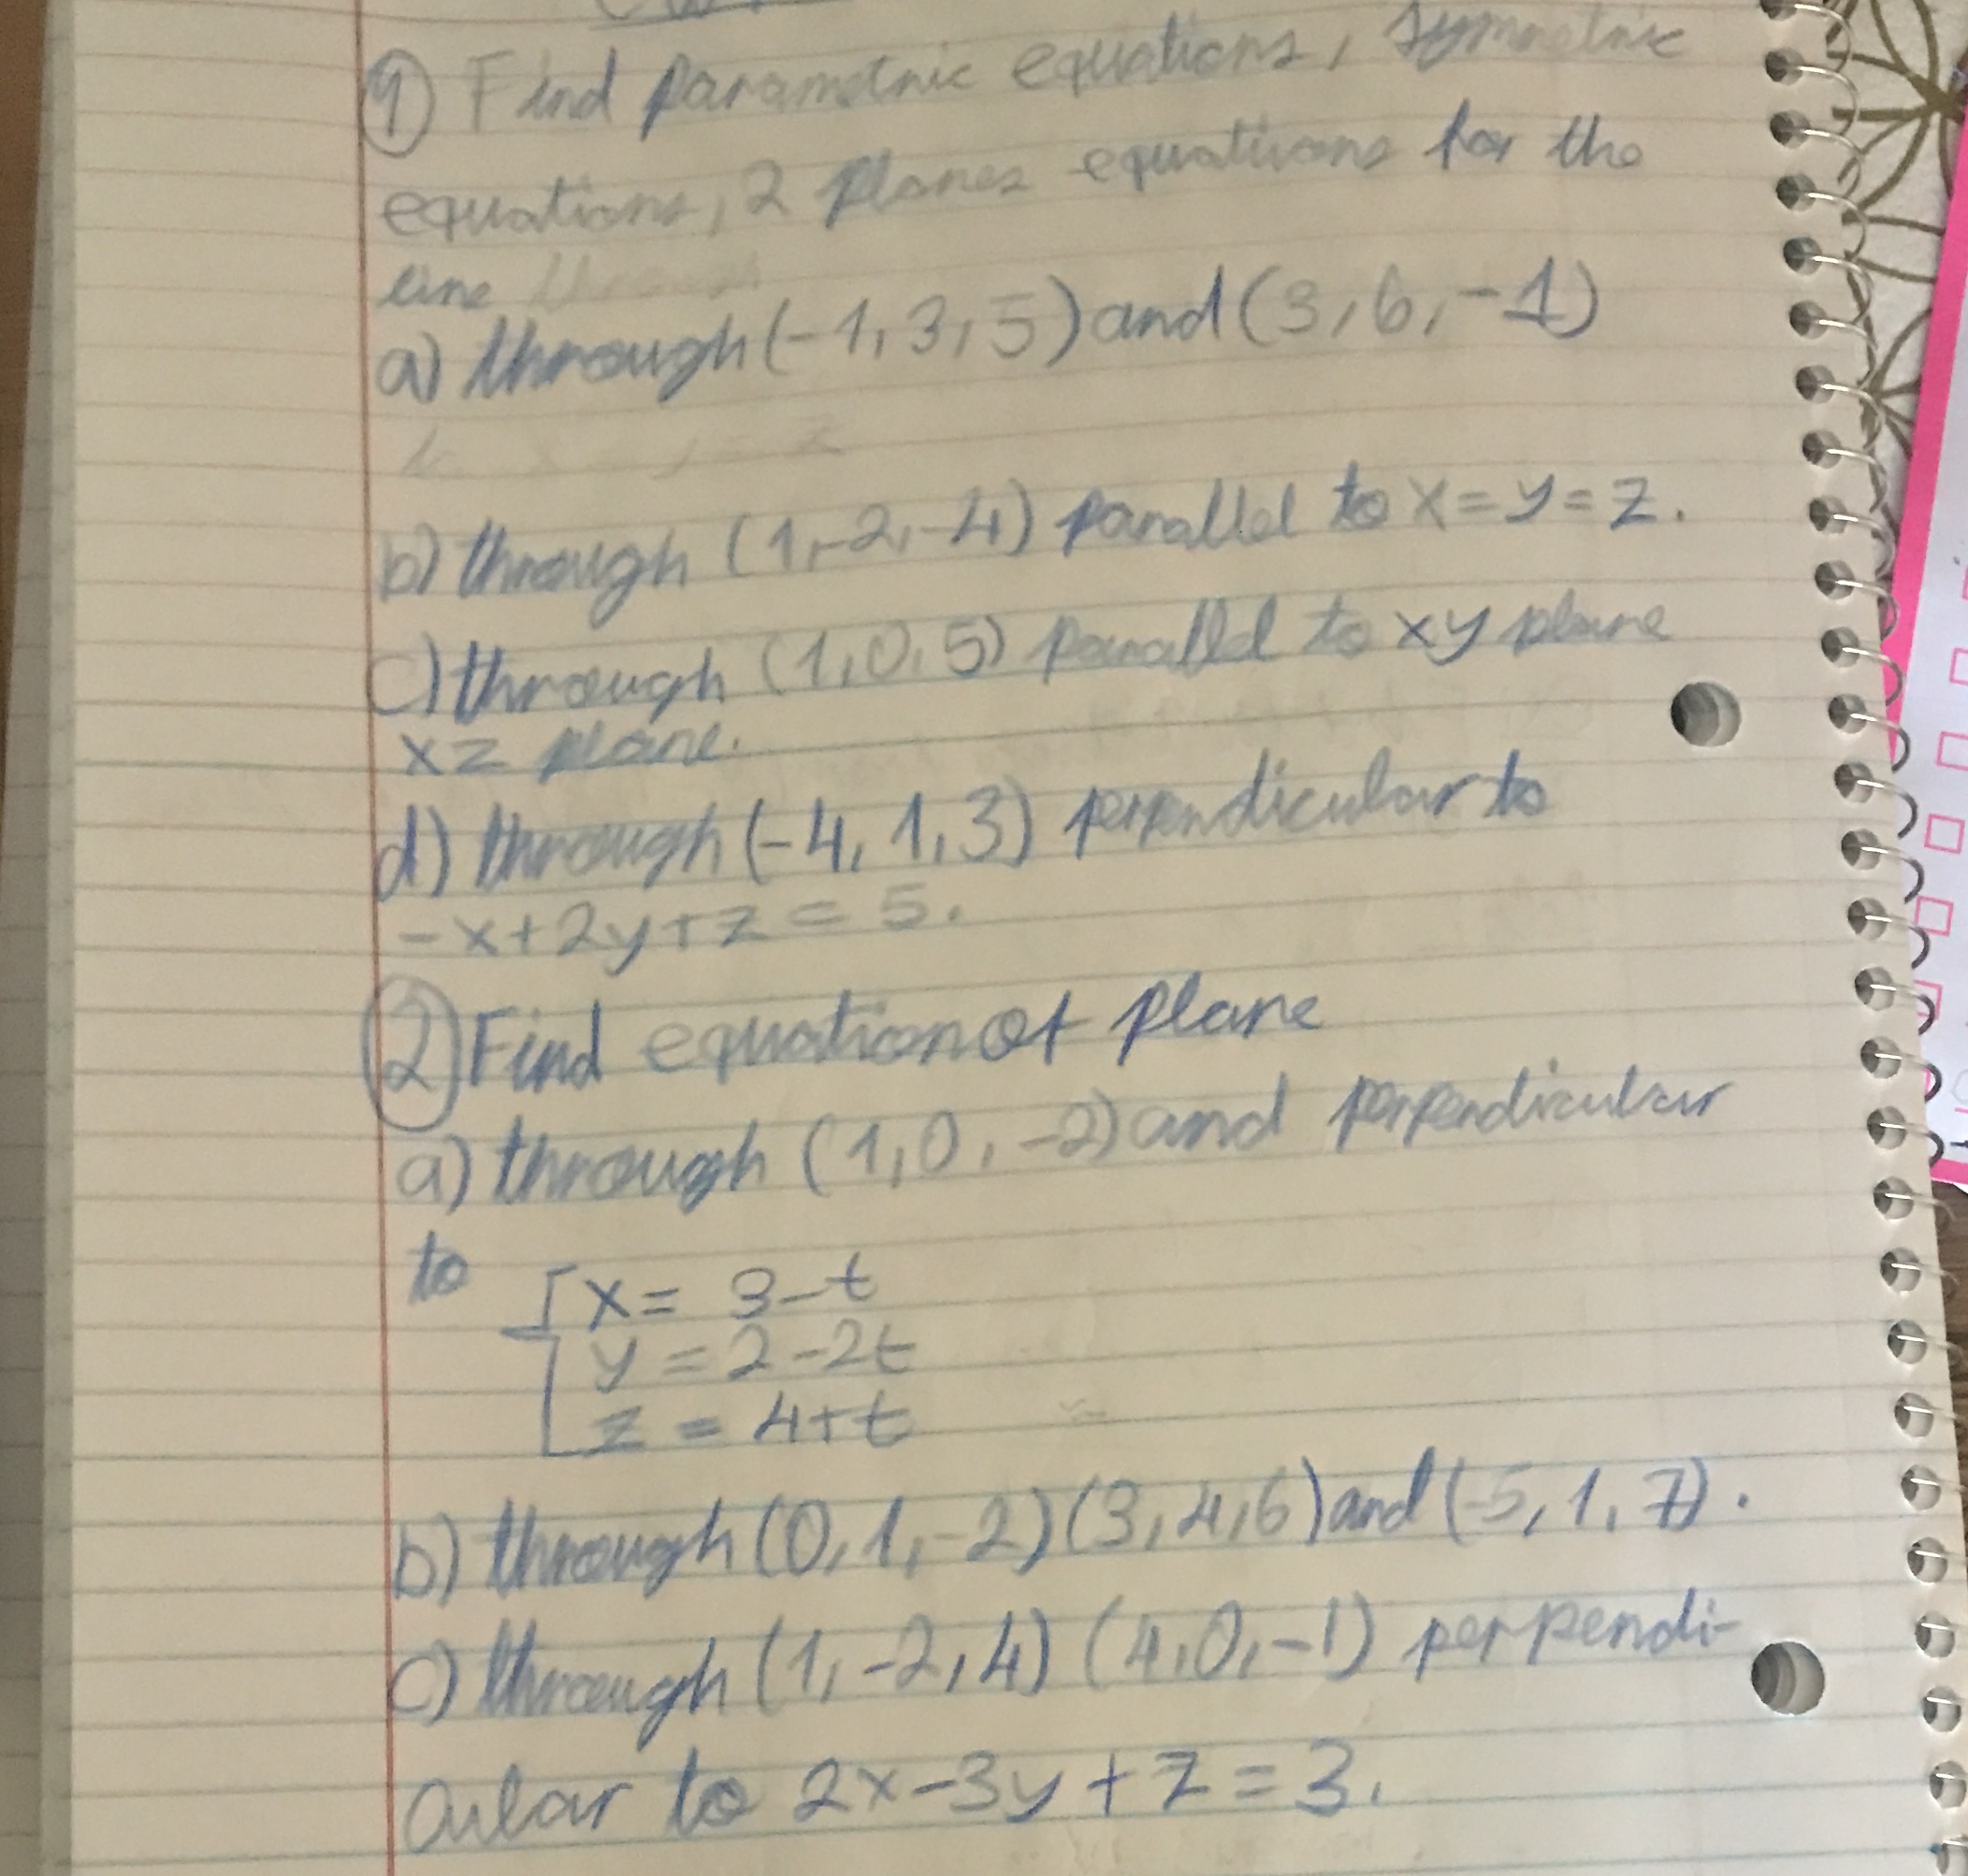 ① Find parametric equations, symmetric
equations, 2 planes equations for the
line through
a) through (-1, 3, 5) and (3, 6, -1)
b) through (1, -2, -4) parallel to x = y = z.
c) through (1, 0, 5) parallel to xy plane
xz plane.
d) through (-4, 1, 3) perpendicular to
-x+2y+z = 5.
② Find equation of plane
a) through (1, 0, -2) and perpendicular
to
x = 3-t
y = 2-2t
z = 4+t
b) through (0, 1, -2) (3, 4, 6) and (-5, 1, 7).
c) through (1, -2, 4) (4, 0, -1) perpendi-
cular to 2x-3y+z=3.